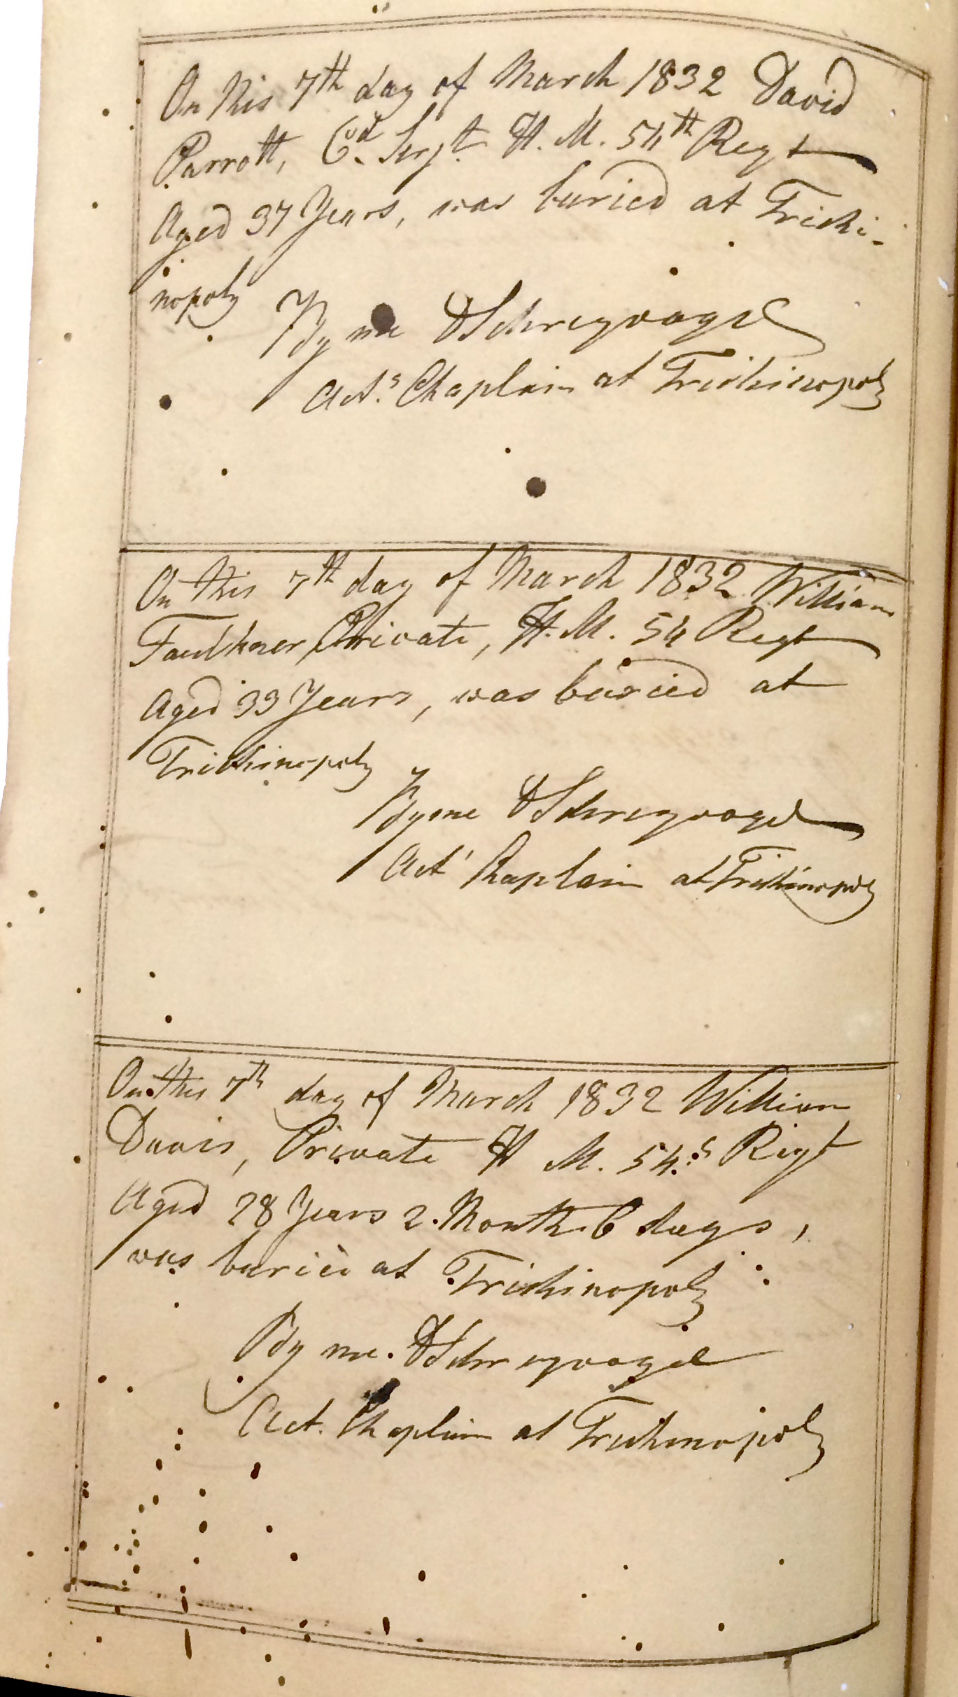 On this 7th day of March 1832 David
Parrott, Cd. Serjt. H. M. 54th Regt
Aged 37 Years, was buried at Trichi-
nopoly
By me DSchreyvogel
Act.s Chaplain at Trichinopoly
On this 7th day of March 1832 William
Faulkner, Private, H. M. 54 Regt
Aged 33 Years, was buried at
Trichinopoly
By me DSchreyvogel
Act' Chaplain at Trichinopoly
On this 7th day of March 1832 William
Davis, Private H M. 54.s Regt
Aged 28 Years 2. Month. 6 days,
was buried at Trichinopoly
By me. DSchreyvogel
Act. Chaplain at Trichinopoly